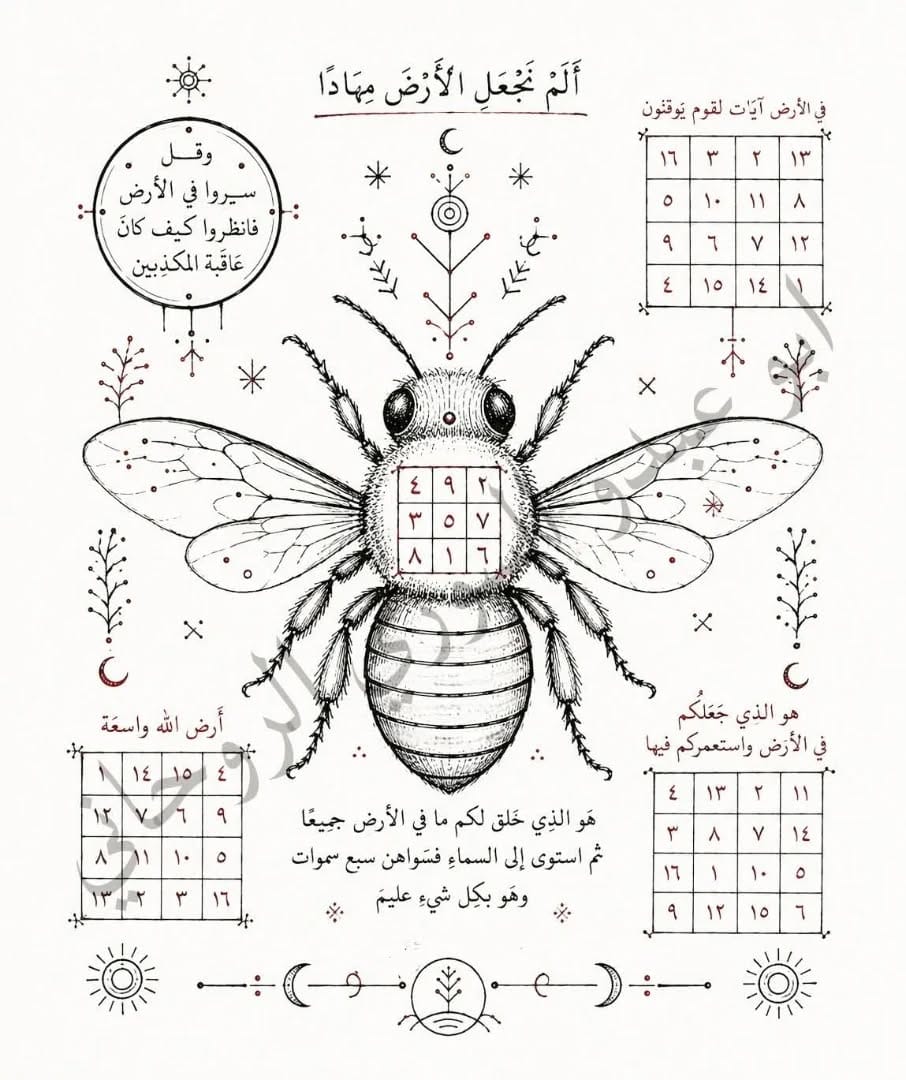 أَلَمْ نَجْعَلِ الْأَرْضَ مِهَادًا
في الأرض آيَات لقوم يَوقنُون
١٦ ٣ ٢ ١٣
٥ ١٠ ١١ ٨
٩ ٦ ٧ ١٢
٤ ١٥ ١٤ ١
وقـــل
سـيروا في الأرض
فانظروا كيف كانَ
عَاقَبة المكذِبين
٤ ٩ ٢
٣ ٥ ٧
٨ ١ ٦
هو الذِي جَعَلكُم
في الأرَض واستعمركم فيها
٤ ١٣ ٢ ١١
٣ ٨ ٧ ١٤
١٦ ١ ١٠ ٥
٩ ١٢ ١٥ ٦
أَرض الله واسعَة
١ ١٤ ١٥ ٤
١٢ ٧ ٦ ٩
٨ ١١ ١٠ ٥
١٣ ٢ ٣ ١٦
هَو الذِي خَلق لكم ما في الأرض جمِيعًا
ثم استوى إلى السماءِ فسَواهن سبع سموات
وهَو بكِل شيءِ عليمَ
ابو عبدو الروحاني